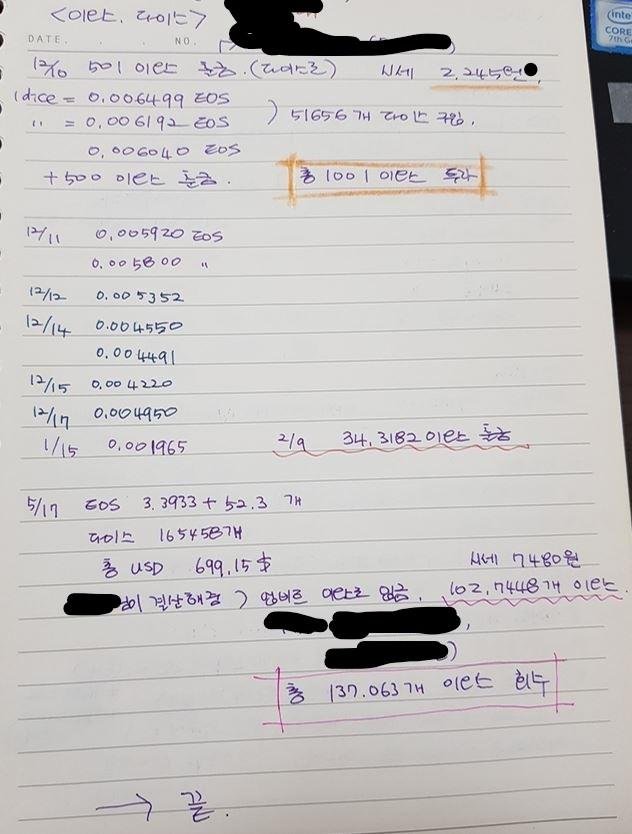 <이란드. 다이스>
DATE. . . NO.
12/10 501 이란드 출금. (다이스로) 시세 2,245원
1dice = 0.006499 EOS
〃 = 0.006192 EOS ) 51656개 다이스 구입.
0.006040 EOS
+500 이란드 출금. 총 1001 이란드 투자
12/11 0.005920 EOS
0.005800 〃
12/12 0.005352
12/14 0.004550
0.004491
12/15 0.004220
12/17 0.004950
1/15 0.001965 2/9 34.3182 이란드 출금
5/17 EOS 3.3933 + 52.3 개
다이스 165458개
총 USD 699.15 $
시세 7480원
님이 결산해줌 ) 입금. 102.7448개 이란드
)
총 137.063개 이란드 회수
→ 끝.
intel
CORE
7th Ge